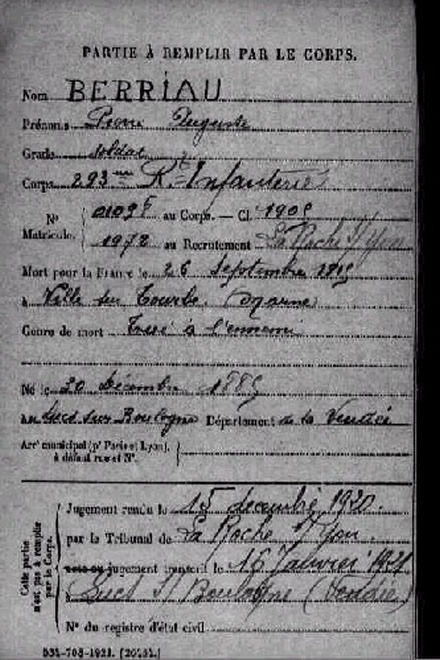 PARTIE À REMPLIR PAR LE CORPS.
Nom BERRIAU
Prénoms Pierre Auguste
Grade soldat
Corps 293me R. Infanterie
N° Matricule. au Corps. — Cl.
1972 au Recrutement La Roche s/Yon
Mort pour la France le 26 septembre 1915
à Ville sur Tourbe (Marne)
Genre de mort Tué à l'ennemi
Né le 20 Décembre
Lucs sur Boulogne Département de la Vendée
Arrt municipal (pr Paris et Lyon), à défaut rue et N°.
Cette partie n'est pas à remplir par le Corps.
Jugement rendu le 15 decembre 1920
par le Tribunal de La Roche s/Yon
acte ou jugement transcrit le 16 Janvier 1921
à Lucs s/ Boulogne (Vendée)
N° du registre d'état civil
534-708-1921. [20434.]